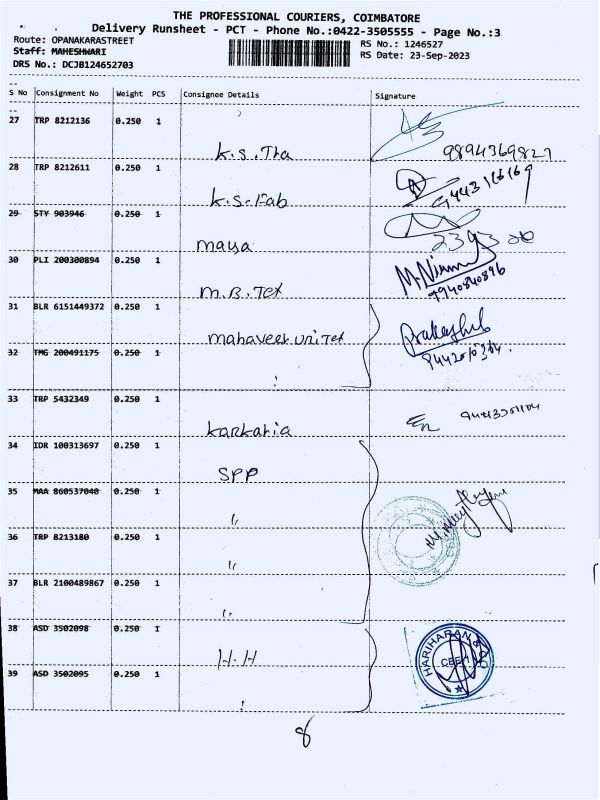 THE PROFESSIONAL COURIERS, COIMBATORE
Delivery Runsheet - PCT - Phone No.:0422-3505555 - Page No.:3
Route: OPANAKARASTREET
RS No.: 1246527
Staff: MAHESHWARI
RS Date: 23-Sep-2023
DRS No.: DCJB124652703
S No Consignment No Weight PCS Consignee Details Signature
27 TRP 8212136 0.250 1
K.S. Tha 9894369827
28 TRP 8212611 0.250 1
K.S. Fab
29 STY 903946 0.250 1
maya
30 PLI 200300894 0.250 1
M.B. Tex 9940840896
31 BLR 6151449372 0.250 1
mahaveer uniTex
32 TMG 200491175 0.250 1
33 TRP 5432349 0.250 1
Karkaria
34 IDR 100313697 0.250 1
SPP
35 MAA 860537040 0.250 1
"
36 TRP 8213180 0.250 1
"
37 BLR 2100489867 0.250 1
"
38 ASD 3502098 0.250 1
H.H HARIHARAN
39 ASD 3502095 0.250 1
8